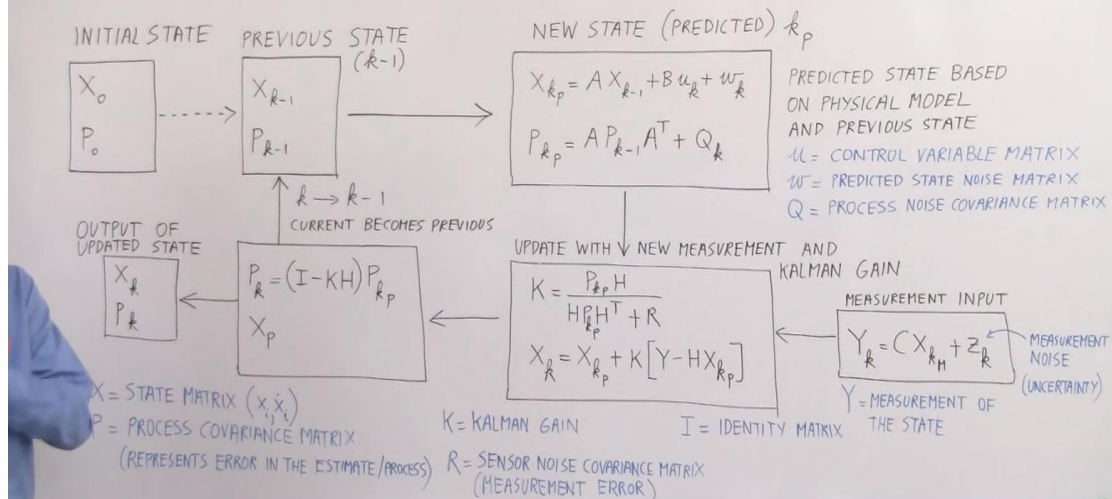 INITIAL STATE
X₀
P₀
PREVIOUS STATE
(k-1)
X_{k-1}
P_{k-1}
NEW STATE (PREDICTED) k_p
X_{k_p} = A X_{k-1} + B u_k + w_k
P_{k_p} = A P_{k-1} A^T + Q_k
PREDICTED STATE BASED
ON PHYSICAL MODEL
AND PREVIOUS STATE
u = CONTROL VARIABLE MATRIX
w = PREDICTED STATE NOISE MATRIX
Q = PROCESS NOISE COVARIANCE MATRIX
k → k-1
CURRENT BECOMES PREVIOUS
OUTPUT OF
UPDATED STATE
X_k
P_k
P_k = (I-KH) P_{k_p}
X_p
UPDATE WITH NEW MEASUREMENT AND
KALMAN GAIN
K = P_{k_p} H / (H P_{k_p} H^T + R)
X_k = X_{k_p} + K [Y - H X_{k_p}]
MEASUREMENT INPUT
Y_k = C X_{k_M} + Z_k
MEASUREMENT
NOISE
(UNCERTAINTY)
Y = MEASUREMENT OF
THE STATE
X = STATE MATRIX (x_i, ẋ_i)
P = PROCESS COVARIANCE MATRIX
(REPRESENTS ERROR IN THE ESTIMATE/PROCESS)
K = KALMAN GAIN
I = IDENTITY MATRIX
R = SENSOR NOISE COVARIANCE MATRIX
(MEASUREMENT ERROR)